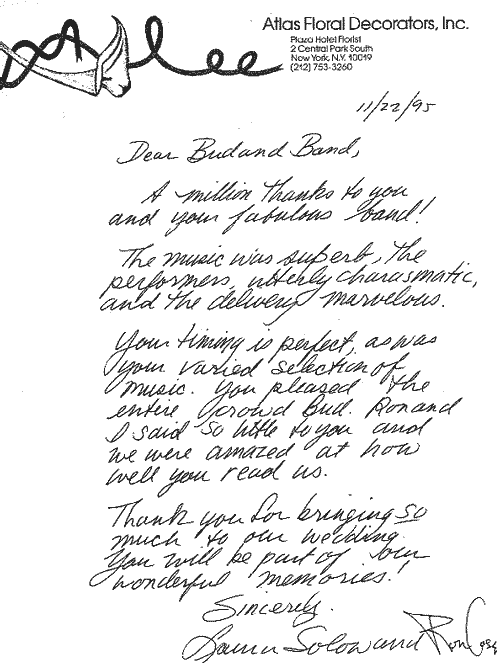 Atlas Floral Decorators, Inc.
Plaza Hotel Florist
2 Central Park South
New York, N.Y. 10019
(212) 753-3260
11/22/95
Dear Bud and Band,
A million thanks to you
and your fabulous band!
The music was superb, the
performers, utterly charasmatic,
and the delivery marvelous.
Your timing is perfect, as was
your varied selection of
music. You pleased the
entire crowd Bud. Ron and
I said so little to you and
we were amazed at how
well you read us.
Thank you for bringing so
much to our wedding.
You will be part of our
wonderful memories!
Sincerely,
Solow and Ron